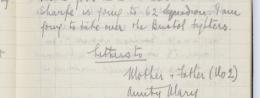 Sharpe is going to 62 Squadron. I am
going to take over the Bristol Fighters.
Letters to
Mother & Father (No 2)
Aunty Mary